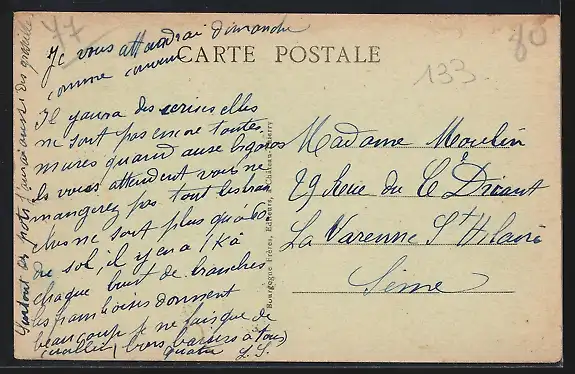 77
80
133
Je vous attendrai dimanche
comme convenu
CARTE POSTALE
Il y aura des cerises elles
ne sont pas encore toutes
mures quand aux bigoros
ils vous attendent vous ne
mangerez pas tout les bran
ches ne sont plus qu'à 60
du sol, il y en a 1K à
chaque bout de branches
les framboises donnent
beaucoup je ne fais que de
cueillir, bons baisers à tous
quatre L.S.
Surtout des pots j'aurai aussi des groseilles
Bourgogne Frères, Editeurs, à Château-Thierry
Madame Moulin
29 Rue du Ct Driant
La Varenne St Hilaire
Seine